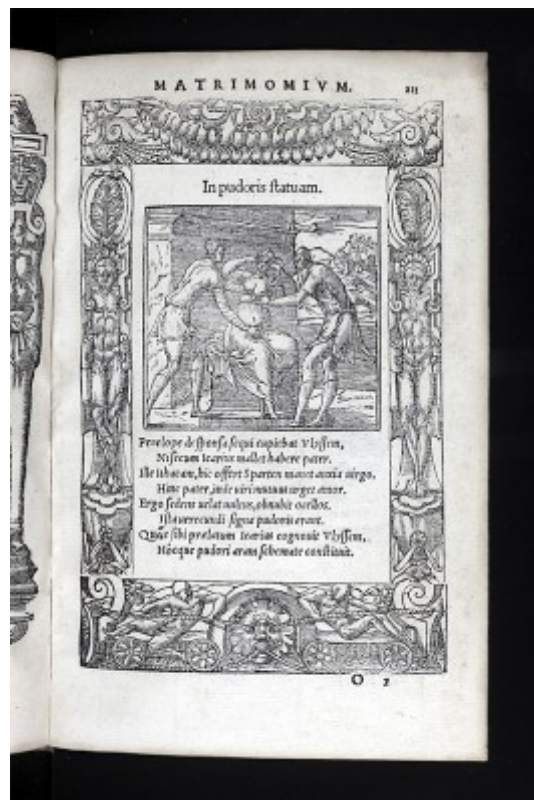 MATRIMOMIVM. 211
In pudoris statuam.
Penelope desponsa sequi cupiebat Vlyssem,
Ni secum Icarius mallet habere pater.
Ille Ithacam, hic offert Sparten manet anxia virgo,
Hinc pater, inde viri mutuus urget amor.
Ergo sedens uelat uultus, obnubit ocellos.
Ista uerecundi signa pudoris erant.
Queis sibi praelatum Icarius cognouit Vlyssem,
Hocque pudori aram schemate constituit.
O 2